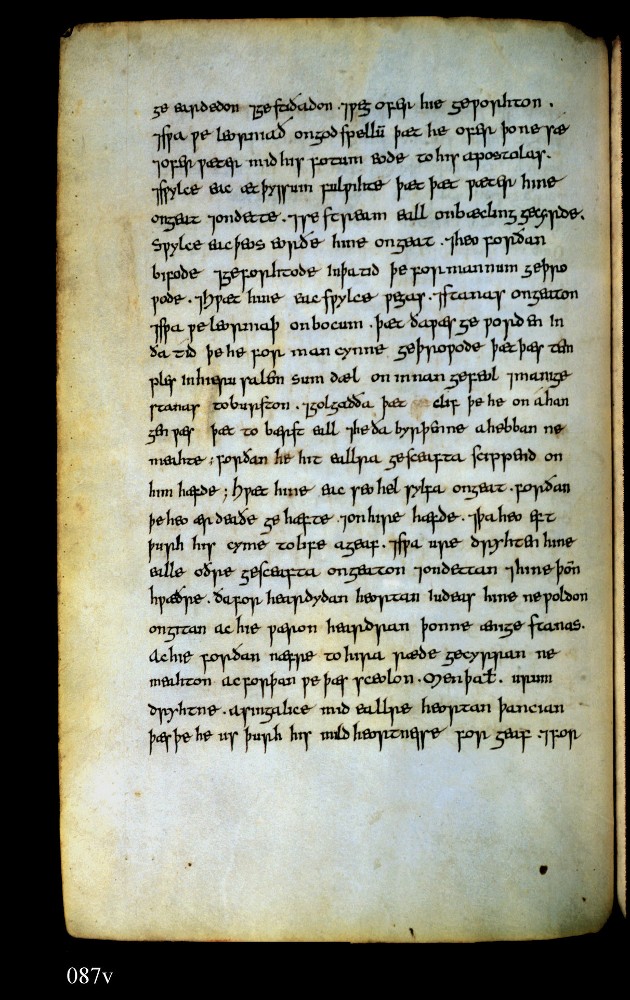 ge eardedon ⁊ge stiðadon . ⁊þæs ofer hie geworhton .
⁊swa we leorniað on godspellū þæt he ofer þone sæ
⁊ofer wæter mid his fotum eode to his apostolas .
⁊swylce eac æt þyssum fulwihte þæt þæt wæter hine
ongeat ⁊ondette . ⁊se stream eall on bæcling gecyrde .
Swylce eac þeos eorðe hine ongeat . ⁊heo forðan
bifode ⁊geforhtode in þa tid þe for mannum geþro
wode . ⁊hwæt hine eac swylce wegas . ⁊stanas ongeaton
⁊swa we leorniaþ on bocum . þæt ða wæs geworden in
ða tid þe he for man cynne geþrowode þæt þæs tem
ples in hierusalem sum dæl on innan gefeol ⁊manige
stanas toburston . ⁊golgadda þæt clif þe he on ahan
gen wæs þæt to bærst eall ⁊he ða byrþenne ahebban ne
meahte ; forðan he hit eallra gesceafta scippend on
him hæfde ; hwæt hine eac seo hel sylfa ongeat . forðan
þe heo ær deade gehæfte . ⁊on hire hæfde . ⁊þa heo eft
þurh his cyme to life ageaf . ⁊swa ure dryhten hine
ealle oðre gesceafta ongeaton ⁊ondettan ⁊hine þoñ
hwæðre . ða for heardydan heortan Iudeas hine ne woldon
ongitan ac hie wæron heardran þonne ænige stanas .
Ac hie forðan næfre to hira ræde gecyrran ne
meahton ac forþan we þæs sceolon . Men þa ł . urum
dryhtne . a singalice mid eallre heortan þancian
þæs þe he us þurh his mildheortnesse for geaf . ⁊for
087v